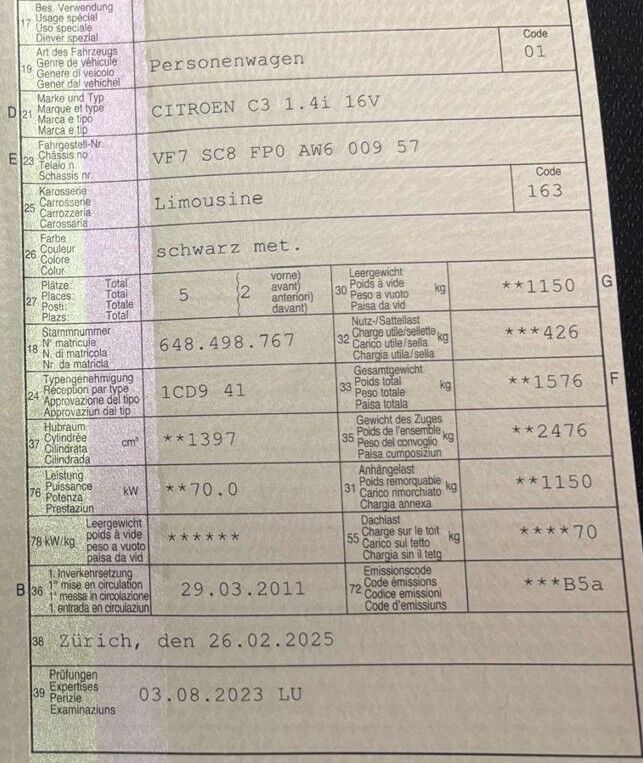 17 Bes. Verwendung
Usage spécial
Uso speciale
Diever spezial
19 Art des Fahrzeugs
Genre de véhicule
Genere di veicolo
Gener dal vehichel
Personenwagen
Code
01
D 21 Marke und Typ
Marque et type
Marca e tipo
Marca e tip
CITROEN C3 1.4i 16V
E 23 Fahrgestell-Nr.
Châssis no
Telaio n.
Schassis nr.
VF7 SC8 FP0 AW6 009 57
25 Karosserie
Carrosserie
Carrozzeria
Carossaria
Limousine
Code
163
26 Farbe
Couleur
Colore
Colur
schwarz met.
27 Plätze: Total
Places: Total
Posti: Totale
Plazs: Total
5 (2 vorne)
avant)
anteriori)
davant)
30 Leergewicht
Poids à vide
Peso a vuoto
Paisa da vid
kg
**1150 G
18 Stammnummer
N° matricule
N. di matricola
Nr. da matricla
648.498.767
32 Nutz-/Sattellast
Charge utile/sellette
Carico utile/sella
Chargia utila/sella
kg
***426
24 Typengenehmigung
Réception par type
Approvazione del tipo
Approvaziun dal tip
1CD9 41
33 Gesamtgewicht
Poids total
Peso totale
Paisa totala
kg
**1576 F
37 Hubraum
Cylindrée
Cilindrata
Cilindrada
cm³
**1397
35 Gewicht des Zuges
Poids de l'ensemble
Peso del convoglio
Paisa cumposiziun
kg
**2476
76 Leistung
Puissance
Potenza
Prestaziun
kW
**70.0
31 Anhängelast
Poids remorquable
Carico rimorchiato
Chargia annexa
kg
**1150
78 kW/kg Leergewicht
poids à vide
peso a vuoto
paisa da vid
******
55 Dachlast
Charge sur le toit
Carico sul tetto
Chargia sin il tetg
kg
****70
B 36 1. Inverkehrsetzung
1re mise en circulation
1a messa in circolazione
1. entrada en circulaziun
29.03.2011
72 Emissionscode
Code émissions
Codice emissioni
Code d'emissiuns
***B5a
38 Zürich, den 26.02.2025
39 Prüfungen
Expertises
Perizie
Examinaziuns
03.08.2023 LU